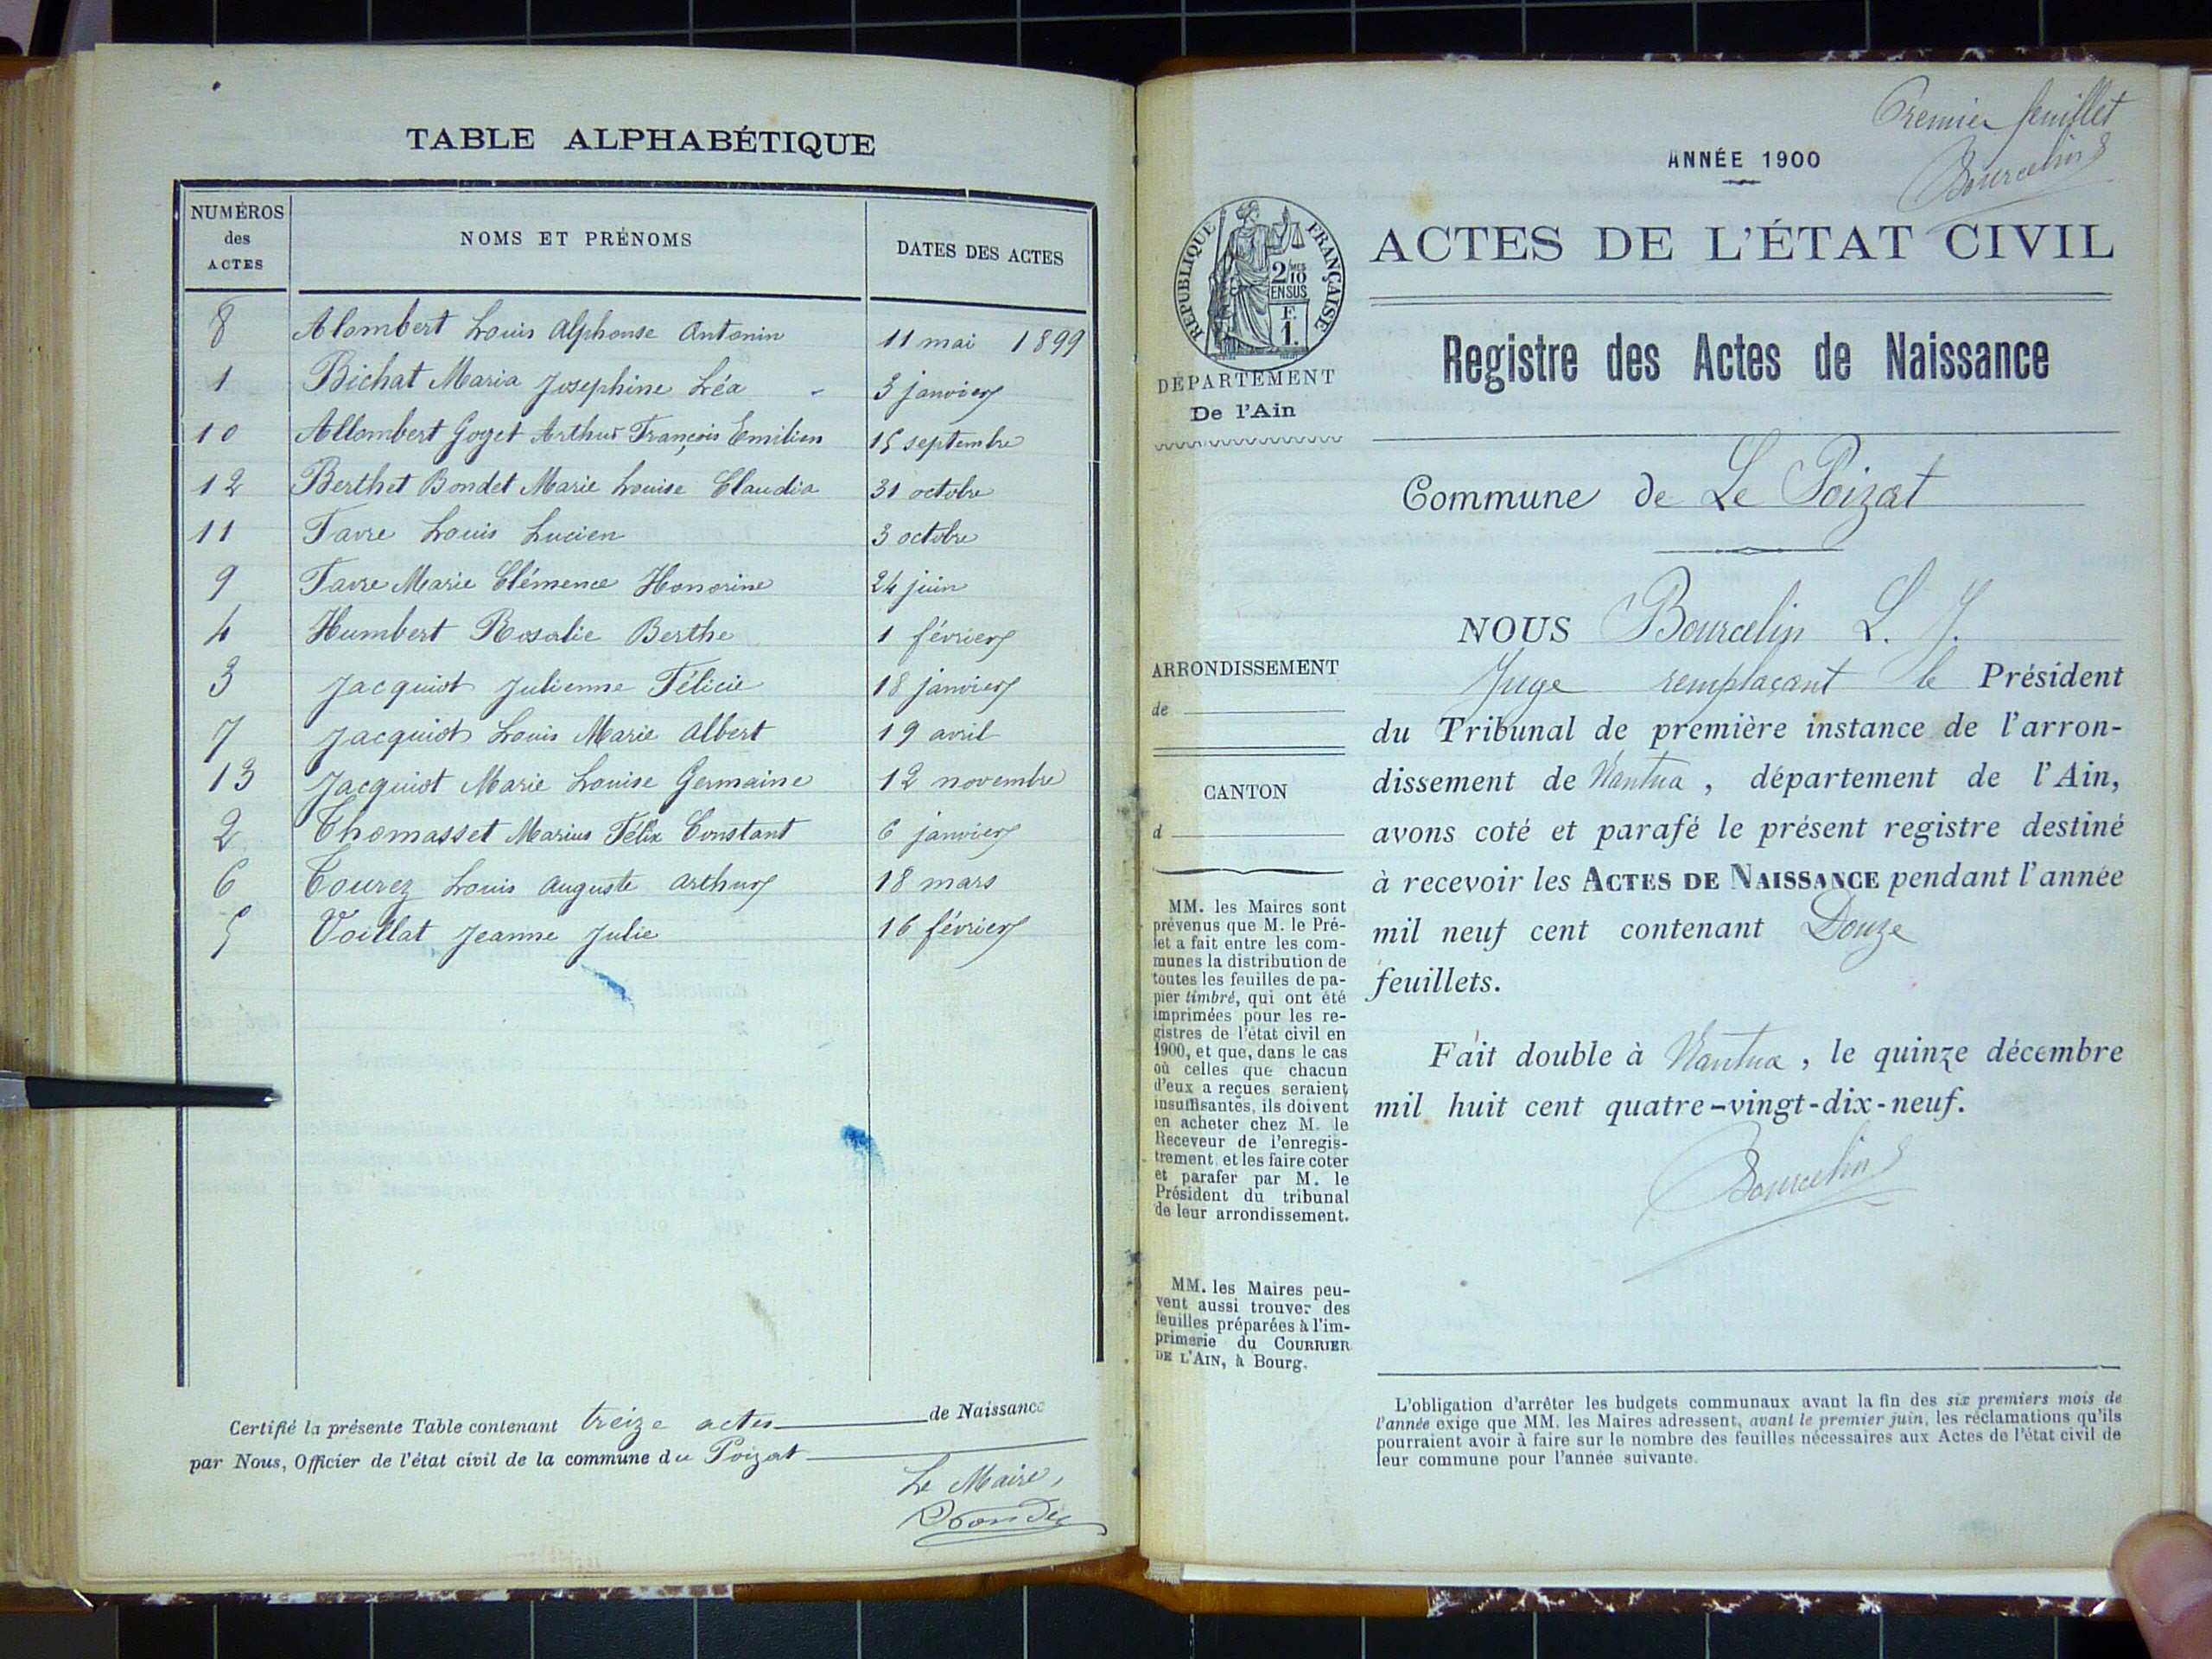 TABLE ALPHABÉTIQUE
NUMÉROS
des
ACTES
NOMS ET PRÉNOMS
DATES DES ACTES
8 Alombert Louis Alphonse Antonin 11 mai 1899
1 Bichat Maria Josephine Léa - 3 janvier
10 Allombert Goget Arthur François Emilien 15 septembre
12 Berthet Bondet Marie Louise Claudia 31 octobre
11 Favre Louis Lucien 3 octobre
9 Favre Marie Clémence Honorine 24 juin
4 Humbert Rosalie Berthe 1 février
3 Jacquiot Julienne Félicie 18 janvier
7 Jacquiot Louis Marie Albert 19 avril
13 Jacquiot Marie Louise Germaine 12 novembre
2 Thomasset Marius Félix Constant 6 janvier
6 Tourez Louis Auguste Arthur 18 mars
5 Voillat Jeanne Julie 16 février
Certifié la présente Table contenant treize actes de Naissance
par Nous, Officier de l'état civil de la commune du Poizat
Le Maire,
Premier feuillet
Bourcelin
ANNÉE 1900
RÉPUBLIQUE FRANÇAISE
2/10 MES
EN SUS
F.
1.
DÉPARTEMENT
De l'Ain
ACTES DE L'ÉTAT CIVIL
Registre des Actes de Naissance
Commune de Le Poizat
ARRONDISSEMENT
de
CANTON
d
MM. les Maires sont
prévenus que M. le Pré-
fet a fait entre les com-
munes la distribution de
toutes les feuilles de pa-
pier timbré, qui ont été
imprimées pour les re-
gistres de l'état civil en
1900, et que, dans le cas
où celles que chacun
d'eux a reçues seraient
insuffisantes, ils doivent
en acheter chez M. le
Receveur de l'enregis-
trement et les faire coter
et parafer par M. le
Président du tribunal
de leur arrondissement.
MM. les Maires peu-
vent aussi trouver des
feuilles préparées à l'im-
primerie du COURRIER
DE L'AIN, à Bourg.
NOUS Bourcelin L. J.
Juge remplaçant le Président
du Tribunal de première instance de l'arron-
dissement de Nantua, département de l'Ain,
avons coté et parafé le présent registre destiné
à recevoir les ACTES DE NAISSANCE pendant l'année
mil neuf cent contenant Douze
feuillets.
Fait double à Nantua, le quinze décembre
mil huit cent quatre-vingt-dix-neuf.
Bourcelin
L'obligation d'arrêter les budgets communaux avant la fin des six premiers mois de
l'année exige que MM. les Maires adressent, avant le premier juin, les réclamations qu'ils
pourraient avoir à faire sur le nombre des feuilles nécessaires aux Actes de l'état civil de
leur commune pour l'année suivante.